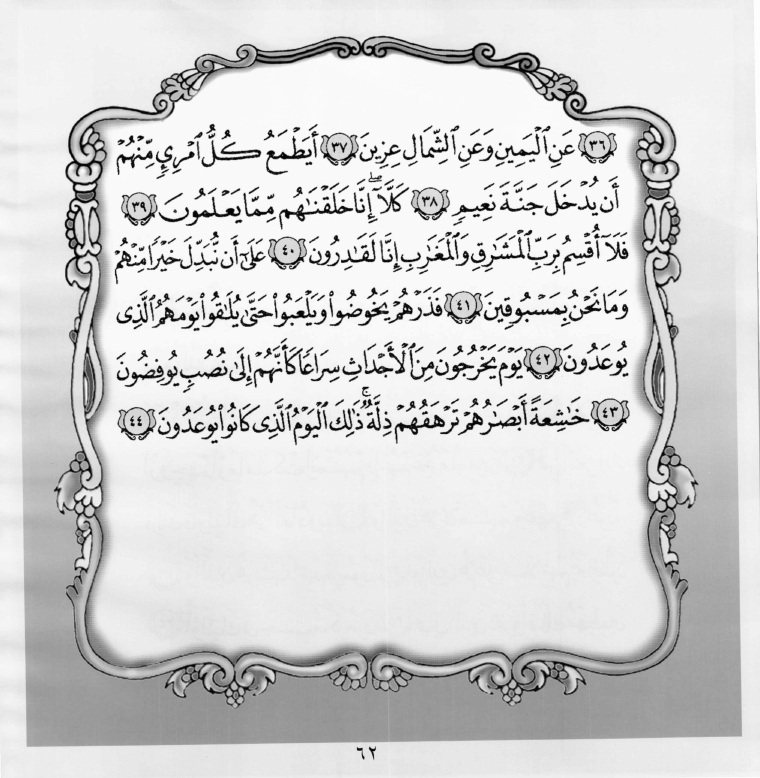 ٣٦ عَنِ ٱلْيَمِينِ وَعَنِ ٱلشِّمَالِ عِزِينَ ٣٧ أَيَطْمَعُ كُلُّ ٱمْرِيٕ مِّنْهُمْ
أَن يُدْخَلَ جَنَّةَ نَعِيمٍ ٣٨ كَلَّآ ۖ إِنَّا خَلَقْنَٰهُم مِّمَّا يَعْلَمُونَ ٣٩
فَلَآ أُقْسِمُ بِرَبِّ ٱلْمَشَٰرِقِ وَٱلْمَغَٰرِبِ إِنَّا لَقَٰدِرُونَ ٤٠ عَلَىٰٓ أَن نُّبَدِّلَ خَيْرًا مِّنْهُمْ
وَمَا نَحْنُ بِمَسْبُوقِينَ ٤١ فَذَرْهُمْ يَخُوضُوا۟ وَيَلْعَبُوا۟ حَتَّىٰ يُلَٰقُوا۟ يَوْمَهُمُ ٱلَّذِى
يُوعَدُونَ ٤٢ يَوْمَ يَخْرُجُونَ مِنَ ٱلْأَجْدَاثِ سِرَاعًا كَأَنَّهُمْ إِلَىٰ نُصُبٍ يُوفِضُونَ
٤٣ خَٰشِعَةً أَبْصَٰرُهُمْ تَرْهَقُهُمْ ذِلَّةٌ ۚ ذَٰلِكَ ٱلْيَوْمُ ٱلَّذِى كَانُوا۟ يُوعَدُونَ ٤٤
٦٢